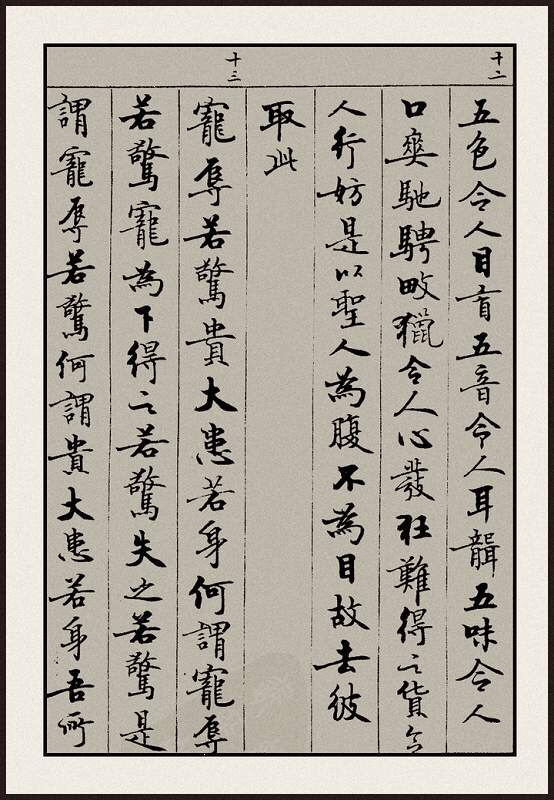 十二
五色令人目盲五音令人耳聾五味令人
口爽馳騁畋獵令人心發狂難得之貨令
人行妨是以聖人為腹不為目故去彼
取此
十三
寵辱若驚貴大患若身何謂寵辱
若驚寵為下得之若驚失之若驚是
謂寵辱若驚何謂貴大患若身吾所